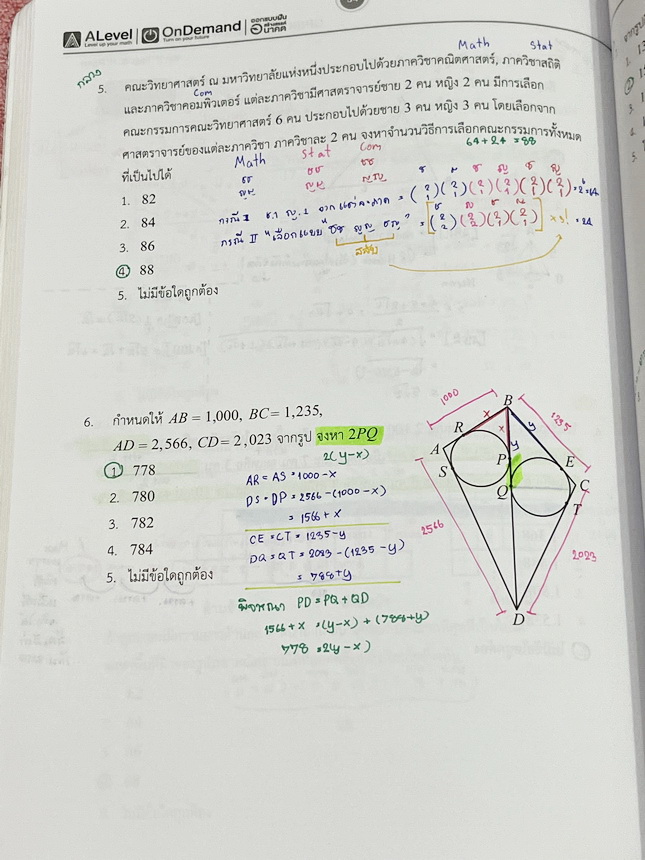 ALevel OnDemand ออกแบบฝัน สร้างสรรค์ อนาคต
Level up your math Turn on your future
Math Stat
กลาง
5. คณะวิทยาศาสตร์ ณ มหาวิทยาลัยแห่งหนึ่งประกอบไปด้วยภาควิชาคณิตศาสตร์, ภาควิชาสถิติ
Com
และภาควิชาคอมพิวเตอร์ แต่ละภาควิชามีศาสตราจารย์ชาย 2 คน หญิง 2 คน มีการเลือก
คณะกรรมการคณะวิทยาศาสตร์ 6 คน ประกอบไปด้วยชาย 3 คน หญิง 3 คน โดยเลือกจาก
ศาสตราจารย์ของแต่ละภาควิชา ภาควิชาละ 2 คน จงหาจำนวนวิธีการเลือกคณะกรรมการทั้งหมด
64+24 = 88
ที่เป็นไปได้
Math Stat Com
ชช ชช ชช
ญญ ญญ ญญ
1. 82
2. 84
3. 86
4. 88
5. ไม่มีข้อใดถูกต้อง
กรณี I ช.1 ญ.1 จากแต่ละภาค = (2 1)(2 1)(2 1)(2 1)(2 1)(2 1) = 2⁶ = 64
กรณี II "เลือกแบบ "ชช ญญ ชญ" = [(2 2)(2 2)(2 1)(2 1)] × 3! = 24
สลับ
6. กำหนดให้ AB = 1,000, BC = 1,235,
AD = 2,566, CD = 2,023 จากรูป จงหา 2PQ
2(y-x)
1. 778
2. 780
3. 782
4. 784
5. ไม่มีข้อใดถูกต้อง
AR = AS = 1000-x
DS = DP = 2566-(1000-x)
= 1566+x
CE = CT = 1235-y
DQ = QT = 2023-(1235-y)
= 788+y
พิจารณา PD = PQ + QD
1566+x = (y-x) + (788+y)
778 = 2(y-x)
1000
1235
2566
2023
B
x
x
y
y
R
A
S
P
Q
E
C
T
D